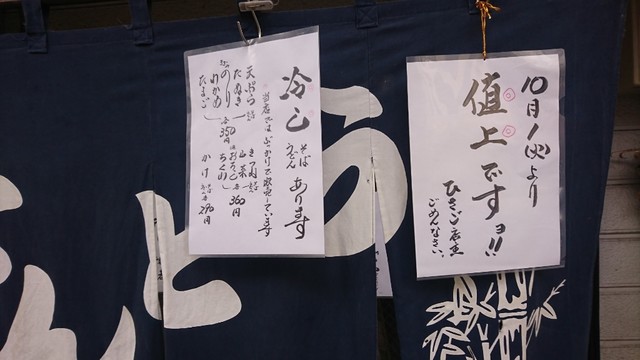 10月1(火)より
値上ですョ!!
ひさご店主
ごめんなさい。
冷し そば うどん あります
当店ではぶっかけで販売しています
天ぷら
たぬき
のり
わかめ
たまご
各350円
きつね
山菜
おろし
各360円
かけ
290円